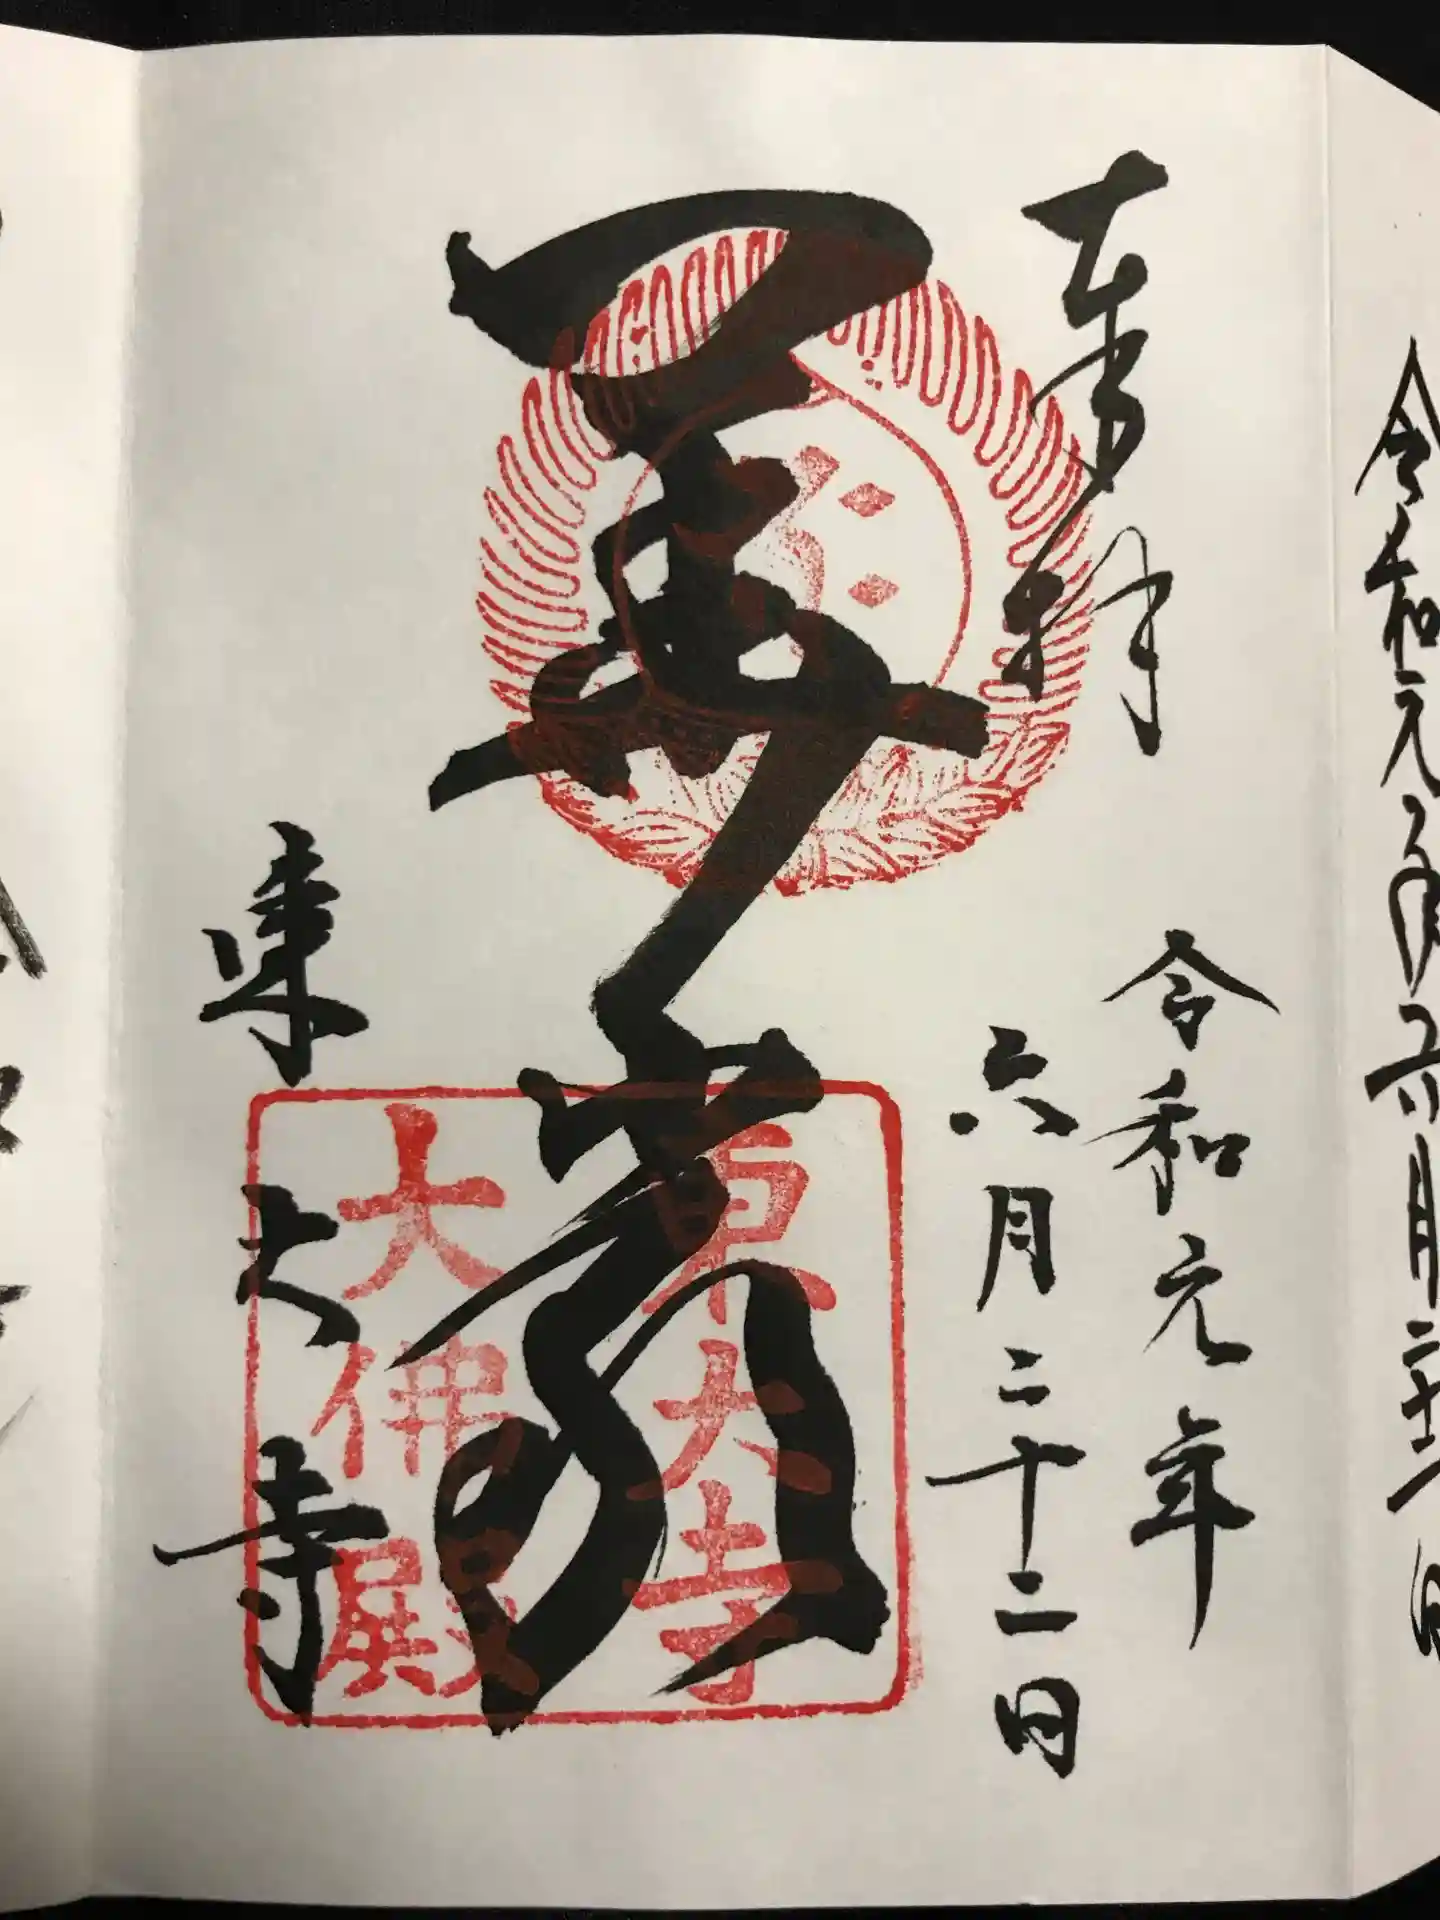 令和元年六月二十一日
奉拝
令和元年
六月二十二日
華厳
東大寺
東大寺
大佛殿